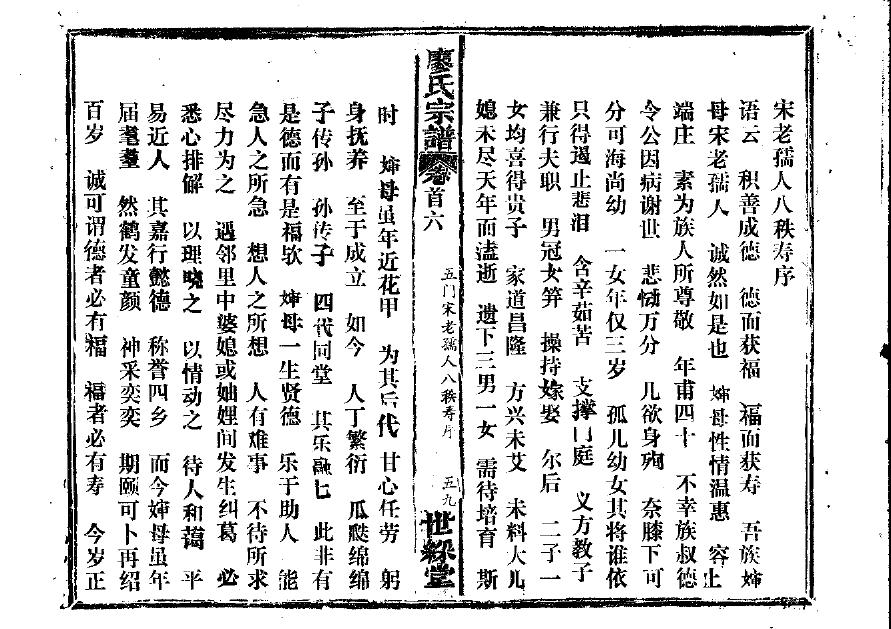 宋老孺人八秩寿序
语云 积善成德 德而获福 福而获寿 吾族婶
母宋老孺人 诚然如是也 婶母性情温惠 容止
端庄 素为族人所尊敬 年甫四十 不幸族叔德
令公因病谢世 悲恸万分 几欲身殉 奈膝下可
分可海尚幼 一女年仅三岁 孤儿幼女其将谁依
只得遏止悲泪 含辛茹苦 支撑门庭 义方教子
兼行夫职 男冠女笄 操持嫁娶 尔后 二子一
女均喜得贵子 家道昌隆 方兴未艾 未料大儿
媳未尽天年而溘逝 遗下三男一女 需待培育 斯
廖氏宗譜 卷首六 五门宋老孺人八秩寿序 五九 世綵堂
时 婶母虽年近花甲 为其后代 甘心任劳 躬
身抚养 至于成立 如今 人丁繁衍 瓜瓞绵绵
子传孙 孙传子 四代同堂 其乐融七 此非有
是德而有是福欤 婶母一生贤德 乐于助人 能
急人之所急 想人之所想 人有难事 不待所求
尽力为之 遇邻里中婆媳或妯娌间发生纠葛 必
悉心排解 以理晓之 以情动之 待人和蔼 平
易近人 其嘉行懿德 称誉四乡 而今婶母虽年
届耄耋 然鹤发童颜 神采奕奕 期颐可卜再绍
百岁 诚可谓德者必有福 福者必有寿 今岁正